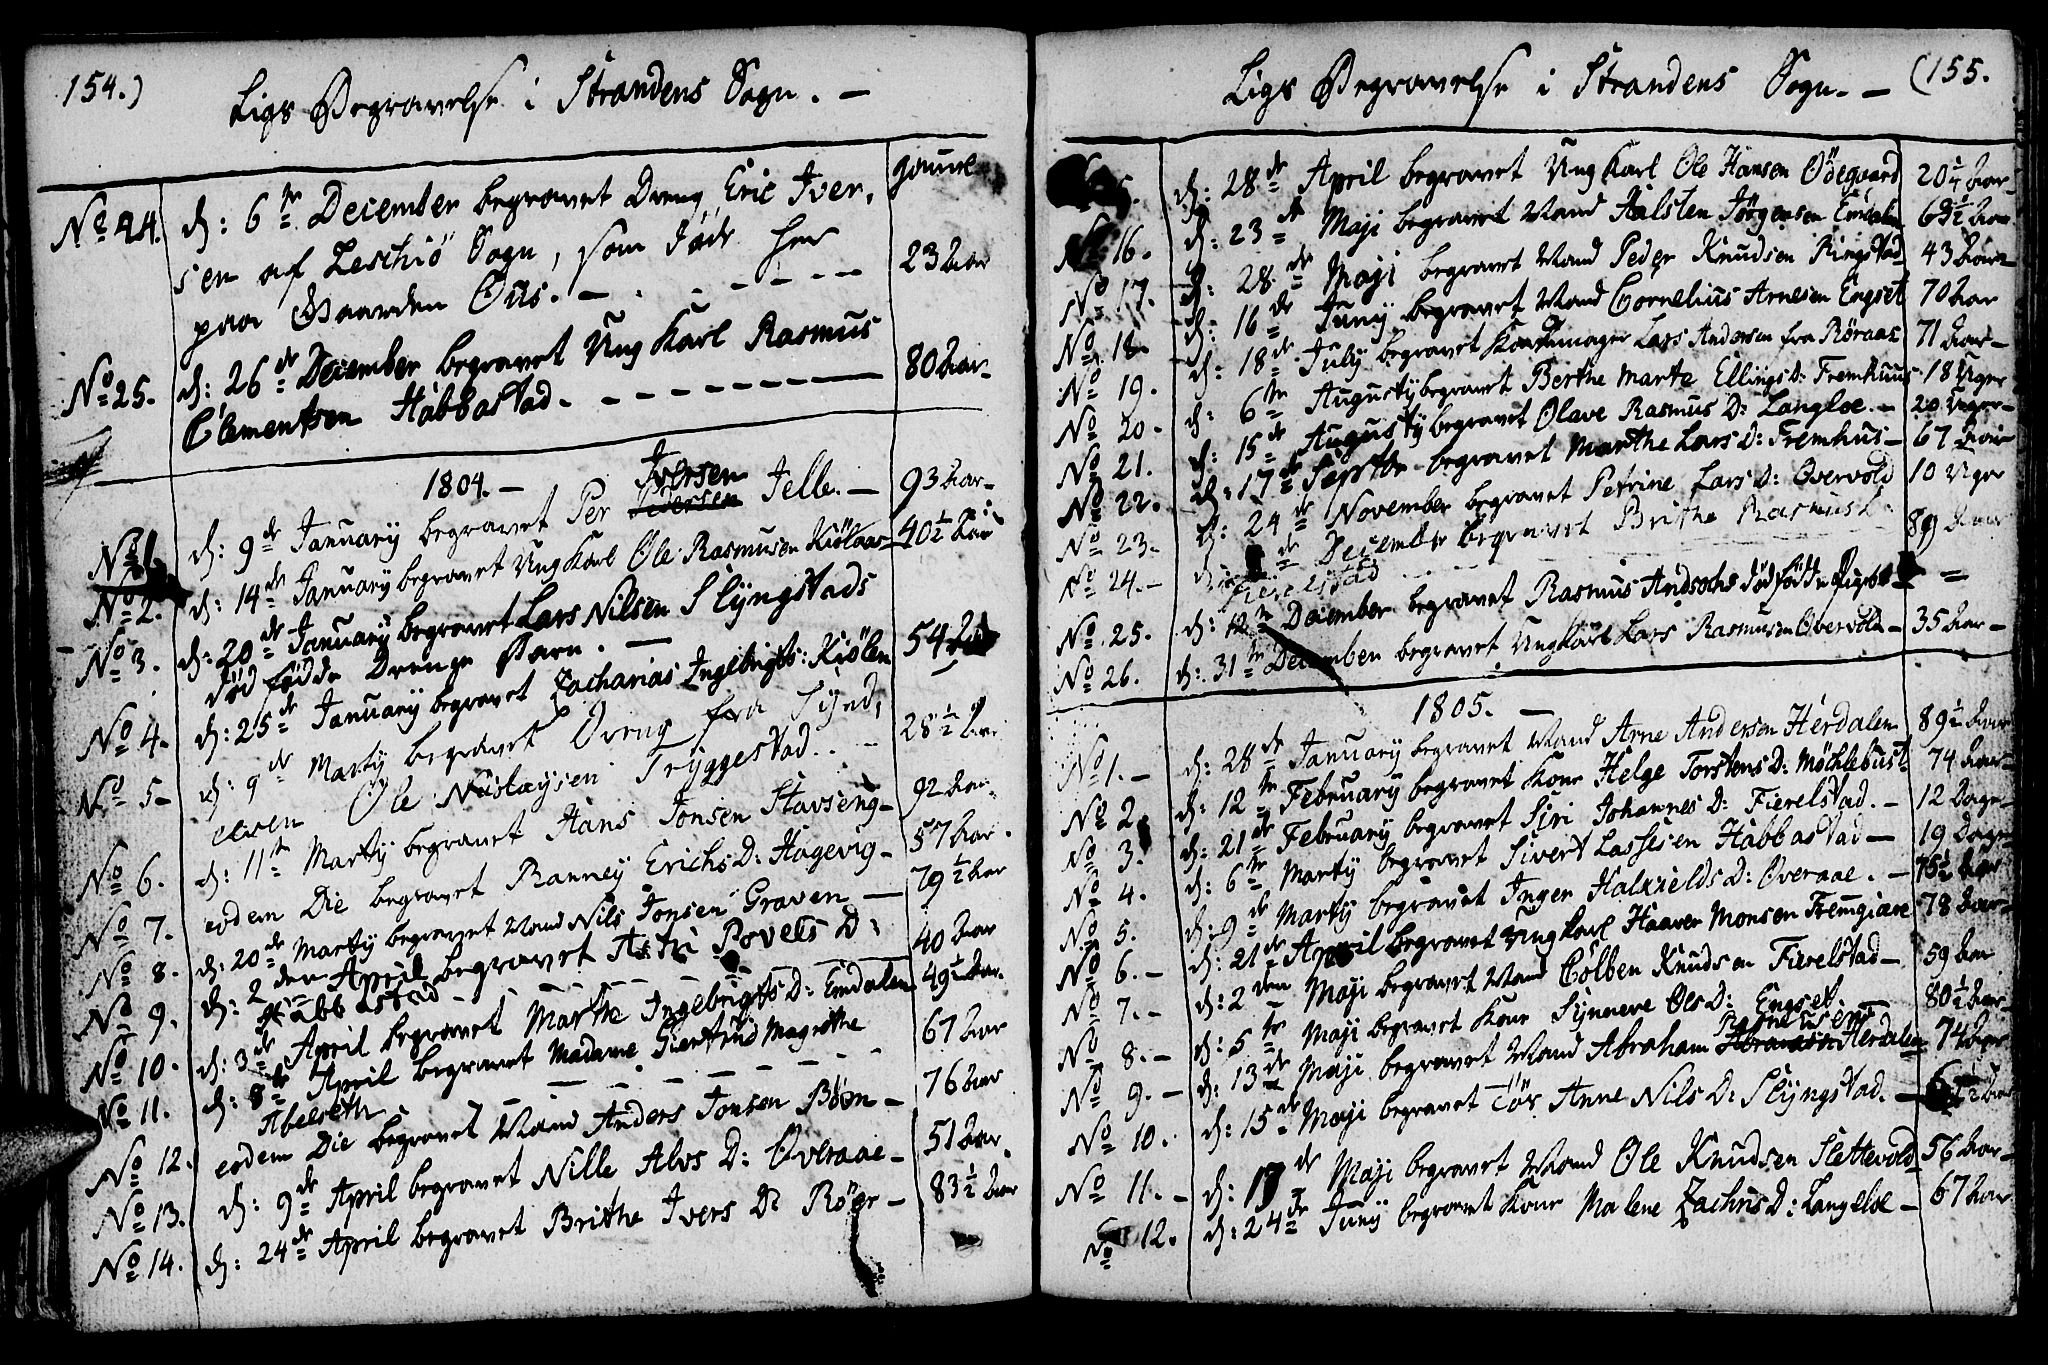 154.)
Ligs Begravelse i Strandens Sogn. —
gamel
No 24. d: 6te December begravet Dreng Eric Iver,
sen af Leschiö Sogn, som döde her
paa Gaarden Ous. — 23 Aar
No 25. d: 26de December begravet Ung Karl Rasmus
Clementsen Habbastad. — 80 Aar —
1804. —
No 1. d: 9de January begravet Per Iversen Jelle. — 93 Aar —
No 2. d: 14de January begravet Ung Karl Ole Rasmusen Kiölaas — 40½ Aar
No 3. d: 20de January begravet Lars Nilsen Slyngstads
död födde Drenge Barn. —
No 4. d: 25de January begravet Zacharias Ingebrigts: Kiölen 54 Aar
No 5 — d: 9de Marty begravet Dreng fra Synd,
elven Ole Nicolaysen Tryggestad. — 28½ Aar
No 6. d: 11te Marty begravet Hans Jonsen Stavseng — 92 Aar.
No 7. eodem Die begravet Ranney Erichs D: Hagevig — 57 Aar.
No 8. d: 20de Marty begravet Mand Nils Jonsen Graven — 79½ Aar
No 9. d: 2den April begravet Astri Povels D:
Habbastad — 40 Aar
No 10. d: 3de April begravet Marthe Ingebrigts D: Emdalen 49½ Aar.
No 11. d: 8de April begravet Madame Giertrud Magrethe
Abelseth — 67 Aar
No 12. eodem Die begravet Mand Anders Jonsen Böen — 76 Aar
No 13. d: 9de April begravet Nille Alvs D: Overaae — 51 Aar.
No 14. d: 24de April begravet Brithe Ivers D: Röer — 83½ Aar
Ligs Begravelse i Strandens Sogn. — (155.
15. d: 28de April begravet Ung Karl Ole Hansen Ödegaard 20¼ Aar —
No 16. d: 23de Maji begravet Mand Halsten Jörgensen Emdalen Aar
No 17. d: 28de Maji begravet Mand Peder Knudsen Ringstad 43 Aar —
No 18. d: 16de Juny begravet Mand Cornelius Arnesen Engset 70 Aar
No 19. d: 18de July begravet Lars Andersen fra Röraas 71 Aar —
No 20. d: 6te Augusty begravet Berthe Marte Ellings D: Fremhuus 18 Uger
No 21. d: 15de Augusty begravet Olave Rasmus D: Langloe. — 20 Uger —
No 22. d: 17de Septbr begravet Marthe Lars D: Fremhus — 67 Aar
No 23. d: 24de November begravet Petrine Lars D: Overvold 10 Uger
No 24. — d: de December begravet Brithe Rasmus D:
Fierelstad 89 Aar
No 25. d: 12te December begravet Rasmus dödfödde =
No 26. d: 31te December begravet Ung Karl Lars Rasmusen Overvold — 35 Aar —
1805. —
No 1. — d: 28de January begravet Mand Arne Andersen Herdalen 89½ Aar
No 2. d: 12te February begravet Kone Helge Torstens D: Möchlebust 74 Aar —
No 3. d: 21de February begravet Siri Johannes D: Fierelstad. — 12 Dage —
No 4. d: 6te Marty begravet Sivert Lassesen Habbastad — 19 Dage —
No 5. d: 9de Marty begravet Inger Halkields D: Overaae. — 75½ Aar
No 6. — d: 21de April begravet Ung Karl Haaver Monsen Fremgiære 78 Aar —
No 7. — d: 2den Maji begravet Mand Colben Knudsen Fierelstad — 59 Aar
No 8. — d: 5te Maji begravet Kone Synneve Ols D: Engset. 80½ Aar
No 9. — d: 13de Maji begravet Mand Abraham Rasmusen Herdalen 74 Aar
No 10. d: 15de Maji begravet Tös Anne Nils D: Slyngstad. — Aar
No 11. — d: 19de Maji begravet Mand Ole Knudsen Slettevold 56 Aar —
No 12. d: 24de Juny begravet Kone Malene Zachris D: Langeloe — 67 Aar